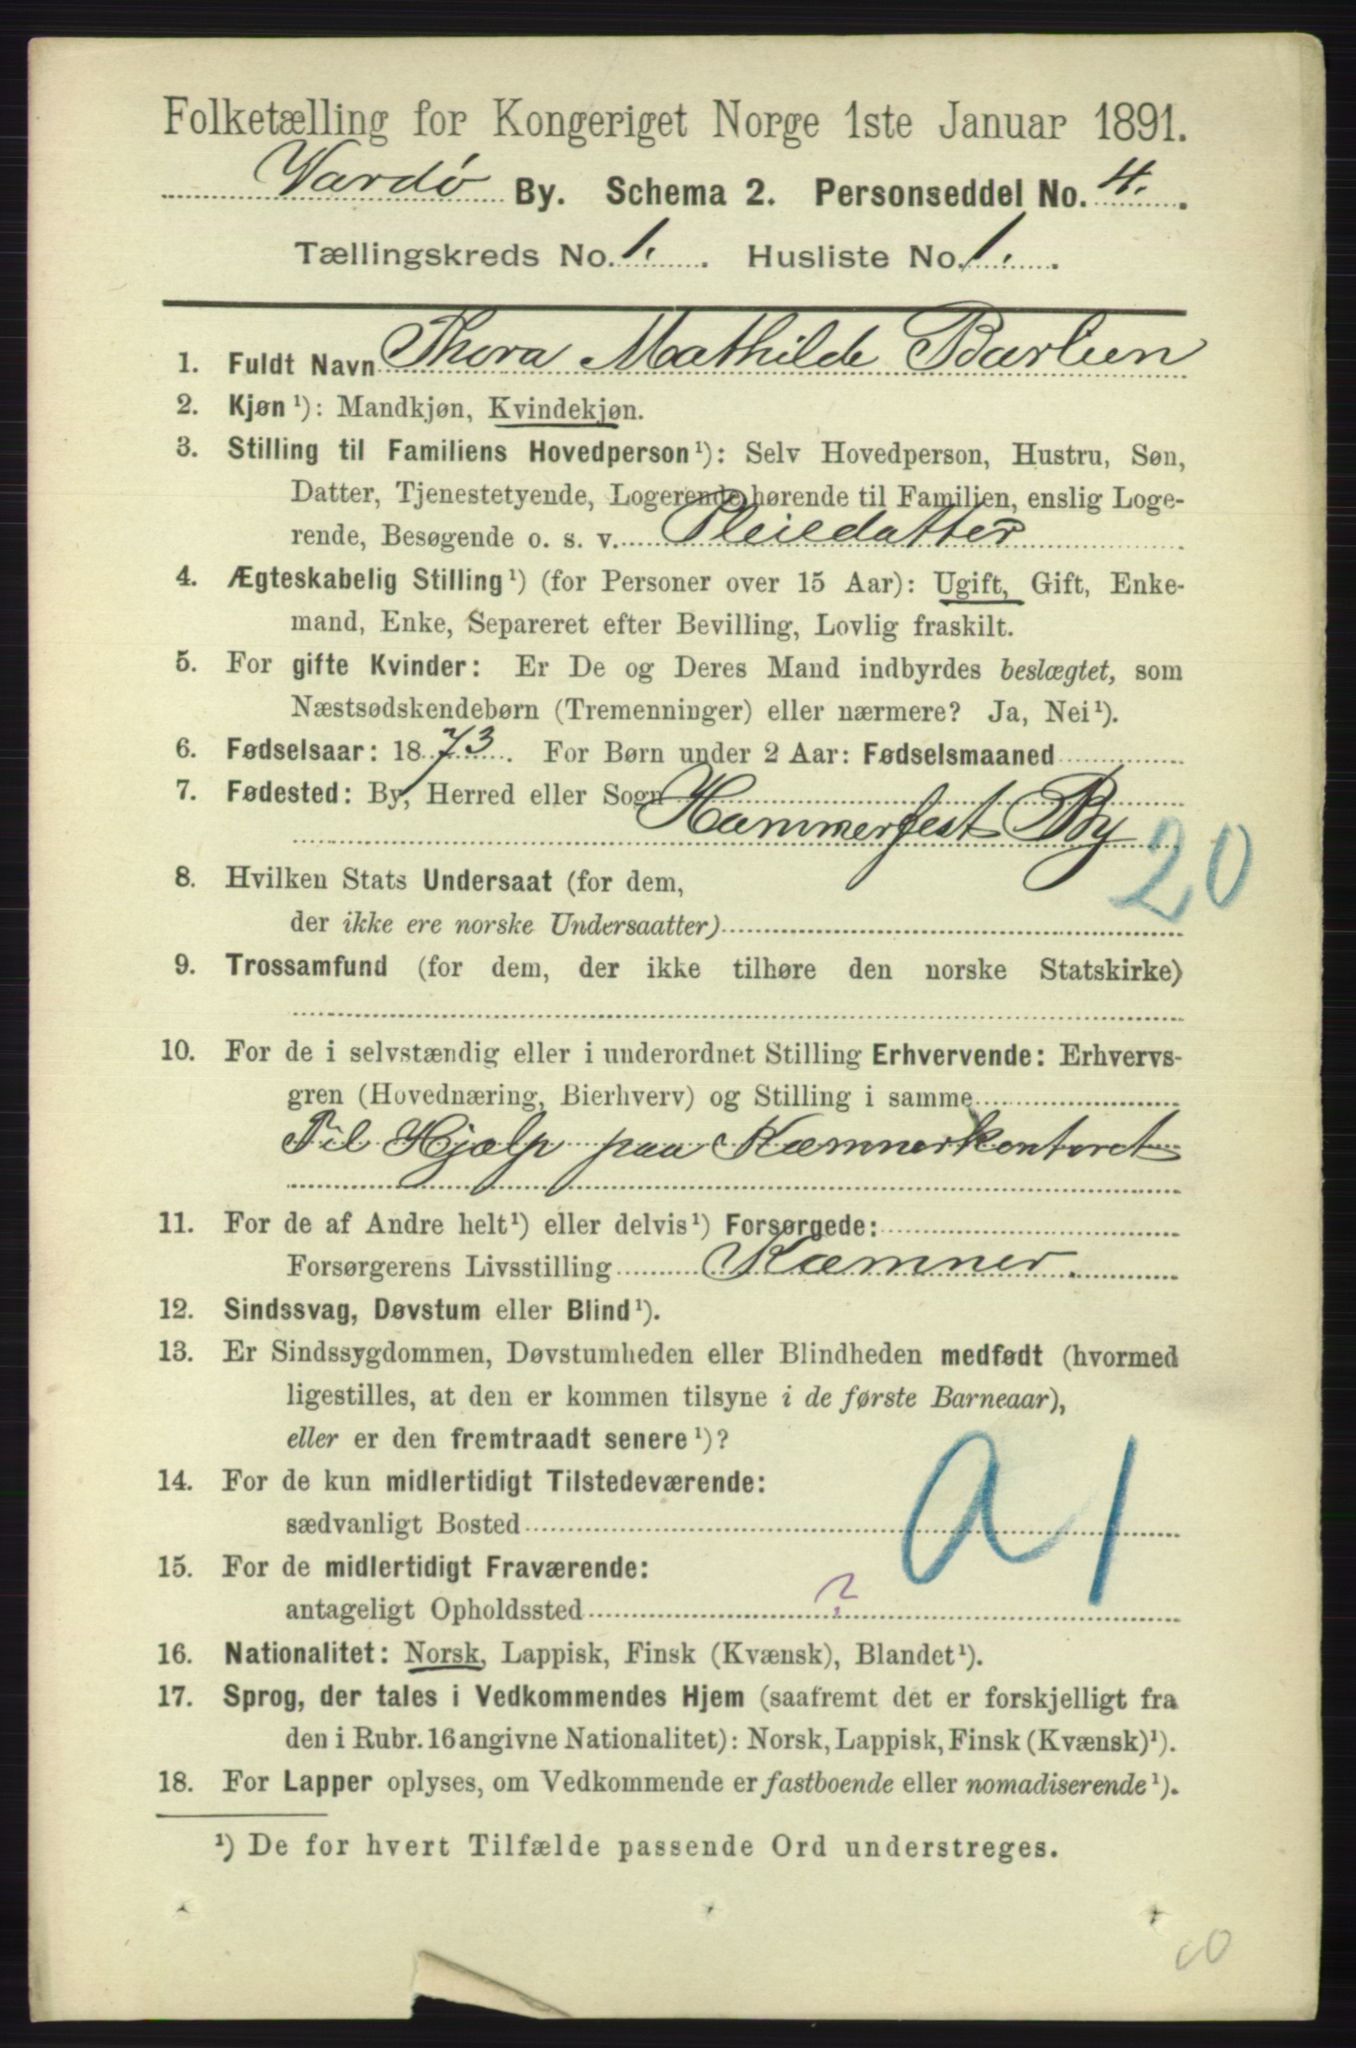 Folketælling for Kongeriget Norge 1ste Januar 1891.
Vardø By. Schema 2. Personseddel No. 4.
Tællingskreds No. 1. Husliste No. 1.
1. Fuldt Navn Thora Mathilde Barlien
2. Kjøn ¹): Mandkjøn, Kvindekjøn.
3. Stilling til Familiens Hovedperson ¹): Selv Hovedperson, Hustru, Søn,
Datter, Tjenestetyende, Logerende hørende til Familien, enslig Loge-
rende, Besøgende o. s. v. Pleiedatter
4. Ægteskabelig Stilling ¹) (for Personer over 15 Aar): Ugift, Gift, Enke-
mand, Enke, Separeret efter Bevilling, Lovlig fraskilt.
5. For gifte Kvinder: Er De og Deres Mand indbyrdes beslægtet, som
Næstsødskendebørn (Tremenninger) eller nærmere? Ja, Nei ¹).
6. Fødselsaar: 1873. For Børn under 2 Aar: Fødselsmaaned
7. Fødested: By, Herred eller Sogn
Hammerfest By
20
8. Hvilken Stats Undersaat (for dem,
der ikke ere norske Undersaatter)
9. Trossamfund (for dem, der ikke tilhøre den norske Statskirke)
10. For de i selvstændig eller i underordnet Stilling Erhvervende: Erhvervs-
gren (Hovednæring, Bierhverv) og Stilling i samme
Til Hjælp paa Kæmnerkontoret
11. For de af Andre helt ¹) eller delvis ¹) Forsørgede:
Forsørgerens Livsstilling Kæmner.
12. Sindssvag, Døvstum eller Blind ¹).
13. Er Sindssygdommen, Døvstumheden eller Blindheden medfødt (hvormed
ligestilles, at den er kommen tilsyne i de første Barneaar),
eller er den fremtraadt senere ¹)?
a1
14. For de kun midlertidigt Tilstedeværende:
sædvanligt Bosted
15. For de midlertidigt Fraværende:
antageligt Opholdssted ?
16. Nationalitet: Norsk, Lappisk, Finsk (Kvænsk), Blandet ¹).
17. Sprog, der tales i Vedkommendes Hjem (saafremt det er forskjelligt fra
den i Rubr. 16 angivne Nationalitet): Norsk, Lappisk, Finsk (Kvænsk) ¹).
18. For Lapper oplyses, om Vedkommende er fastboende eller nomadiserende ¹).
¹) De for hvert Tilfælde passende Ord understreges.